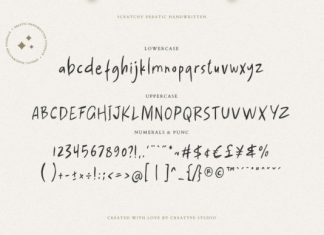 SCRATCHY ERRATIC HANDWRITTEN
LOWERCASE
abcdefghijklmnopqrstuvwxyz
UPPERCASE
ABCDEFGHIJKLMNOPQRSTUVWXYZ
NUMERALS & PUNC
1234567890?!,.
#$¢£¥$%
()+-±x÷!:;<=>@[|]^_{/}®©™
CREATED WITH LOVE BY CREATYPE STUDIO